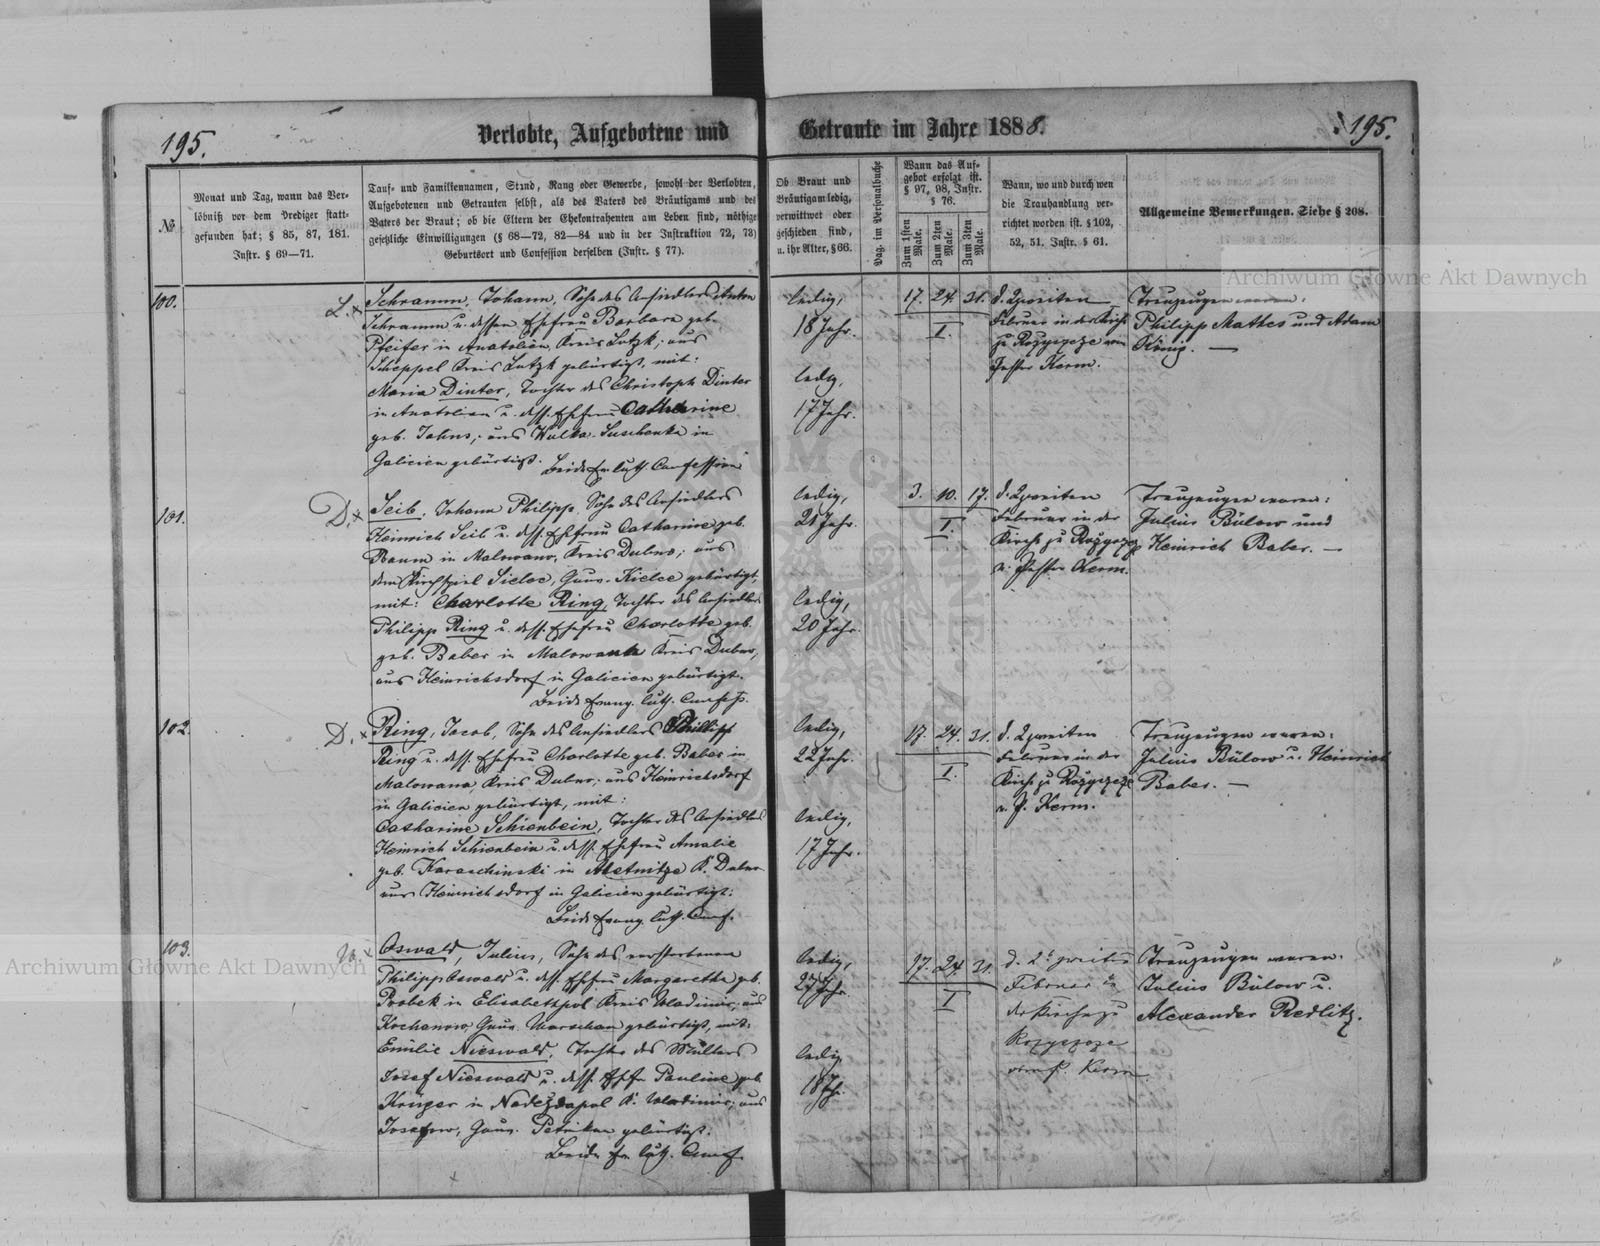 195.
Verlobte, Aufgebotene und
Getraute im Jahre 1888.
195.
№
Monat und Tag, wann das Ver-
löbniß vor dem Prediger statt-
gefunden hat; § 85, 87, 181.
Instr. § 69—71.
Tauf- und Familiennamen, Stand, Rang oder Gewerbe, sowohl der Verlobten,
Aufgebotenen und Getrauten selbst, als des Vaters des Bräutigams und des
Vaters der Braut; ob die Eltern der Ehekontrahenten am Leben sind, nöthige
gesetzliche Einwilligungen (§ 68—72, 82—84 und in der Instruktion 72, 73)
Geburtsort und Confession derselben (Instr. § 77).
Ob Braut und
Bräutigam ledig,
verwittwet oder
geschieden sind,
u. ihr Alter, § 66.
Pag. im Personalbuche
Wann das Auf-
gebot erfolgt ist.
§ 97, 98, Instr.
§ 76.
Zum 1sten Male.
Zum 2ten Male.
Zum 3ten Male.
Wann, wo und durch wen
die Trauhandlung ver-
richtet worden ist. § 102,
52, 51. Instr. § 61.
Allgemeine Bemerkungen. Siehe § 208.
100.
L. x
Schramm, Johann, Sohn des Ansiedlers Anton
Schramm u. dessen Ehefrau Barbara geb.
Pfeifer in Anatolien, Kreis Lutzk; aus
Scheppel Kreis Lutzk gebürtigt, mit:
Maria Dinter, Tochter des Christoph Dinter
in Anatolien u. dess. Ehefrau Catharine
geb. Johns, aus Wulka-Suschenka in
Galicien gebürtigt. Beide Ev. luth. Confession
ledig,
18 Jahr.
ledig,
17 Jahr.
17. 24. 31.
I.
d. Zweiten
Februar in der Kirche
zu Rozyszcze vom
Pastor Kerm.
Trauzeugen waren:
Philipp Mathes und Adam
König. —
101.
D. x
Seib, Johann Philipp, Sohn des Ansiedlers
Heinrich Seib u. dess. Ehefrau Catharine geb.
Baum in Malowana, Kreis Dubno; aus
dem Kirchspiel Sielce, Gouv. Kielce gebürtigt,
mit: Charlotte Ring, Tochter des Ansiedlers
Philipp Ring u. dess. Ehefrau Charlotte geb.
geb. Baber in Malowana Kreis Dubno,
aus Heinrichsdorf in Galicien gebürtigt.
Beide Evang. luth. Confess.
ledig,
21 Jahr.
ledig,
20 Jahr.
3. 10. 17.
I.
d. Zweiten
Februar in der
Kirche zu Rozyszcze
v. Pastor Kerm.
Trauzeugen waren:
Julius Bülow und
Heinrich Baber. —
102.
D. x
Ring, Jacob, Sohn des Ansiedlers Phillipp
Ring u. dess. Ehefrau Charlotte geb. Baber in
Malowana Kreis Dubno; aus Heinrichsdorf
in Galicien gebürtigt, mit:
Catharine Schienbein, Tochter des Ansiedlers
Heinrich Schienbein u. dess. Ehefrau Amalie
geb. Karaschinski in K. Dubno
aus Heinrichsdorf in Galicien gebürtigt:
Beide Evang. luth. Conf.
ledig,
22 Jahr.
ledig,
17 Jahr.
17. 24. 31.
I.
d. Zweiten
Februar in der
Kirche zu Rozyszcze
v. P. Kerm.
Trauzeugen waren:
Julius Bülow u. Heinrich
Baber. —
103.
W. x
Oswald, Julius, Sohn des verstorbenen
Philipp Oswald u. dess. Ehefrau Margaretha geb.
Probek in Elisabethpol Kreis Wladimir; aus
Kochanow, Gouv. Warschau gebürtigt, mit:
Emilie Nieswald, Tochter des Müllers
Josef Nieswald u. dess. Ehefr. Pauline geb.
Krüger in Nadezdapol K. Wladimir; aus
Josefow, Gouv. Petrikau gebürtigt.
Beide Ev. luth. Conf.
ledig,
27 Jahr.
ledig
18 Jhr.
17. 24. 31.
I
d. 2. zweiten
Februar in
der Kirche zu
Rozyszcze
vom P. Kerm.
Trauzeugen waren:
Julius Bülow u.
Alexander Redlitz.
Archiwum Główne Akt Dawnych
Archiwum Główne Akt Dawnych